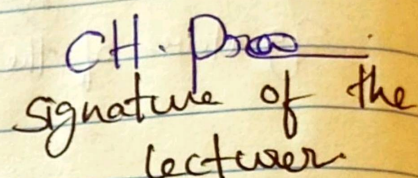 CH.
signature of the
lecturer.